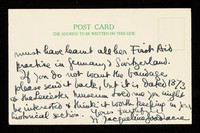 POST CARD
THE ADDRESS TO BE WRITTEN ON THIS SIDE
must have learnt all her First Aid
practice in Germany & Switzerland.
If you do not want the bandage
please send it back, but it is dated 1873
& the Leicester museum told me you might
be interested & think it worth keeping in your
historical section. Yours truly
Jacqueline